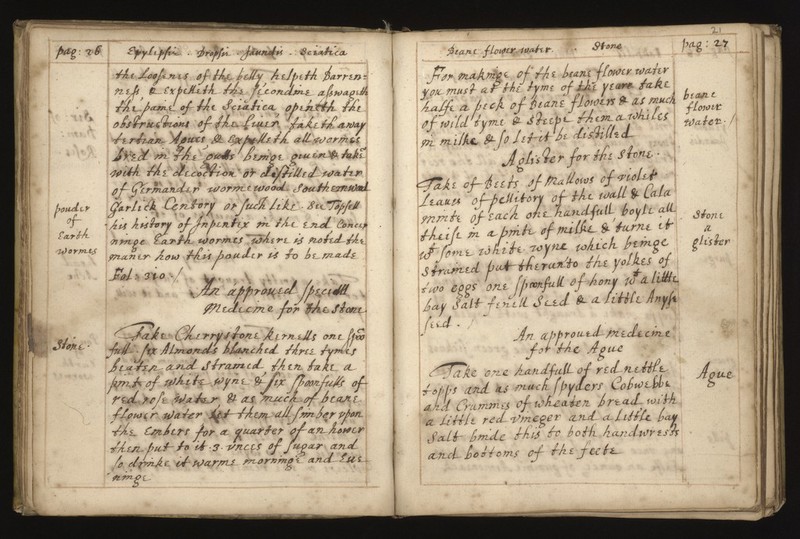 pag: 26 Epylipsie - Dropsie Jaundis - Sciatica
the Loosenes of the belly helpeth Barren=
ness & Expelleth the secondine asswageth
the paine of the Sciatica openeth the
obstructions of the liver taketh away
tertian Agues & Expelleth all wormes
bred in the gutts beinge given & take
with the decoction or distilled water
of Germander wormewood Southernwood
Garlick Centory or such like. See Topsell
his history of Serpentix in the End Concer
ninge Earth wormes where is noted the
maner how this pouder is to be made
Fol: 310 /
pouder
of
Earth
wormes
An approved speciall
Medecine for the Stone
Stone.
Take Cherrystone kernells one spoo
full six Almonds blanched three tymes
beaten and strained then take a
pinte of white wyne & six spoonfulls of
red rose water & as much of beane
flower water let them all simber upon
the Embers for a quarter of an hower
then put to it .3. unces of sugar and
so drinke it warme morninge and Eve
ninge
21
Beane flower water. Stone pag: 27
For makinge of the beane flower water
you must at the tyme of the yeare take
halfe a peck of beane flowers & as much
of wild tyme & steepe them a whiles
in milke & so let it be distilled
beane
flower
water. /
A glister for the Stone.
Take of Beets of Mallows of violet
leaves of pellitory of the wall & Cala
minte of Each one handfull boyle all
theise in a pinte of milke & turne it
wt some white wyne which beinge
strained put thereunto the yolkes of
two eggs one spoonfull of hony wt a little
bay salt finill Seed & a little Anyse
seed. /
Stone
a
glister
An approved medecine
for the Ague
Take one handfull of red nettle
topps and as much spyders Cobwebbe
and Crummes of wheaten bread with
a little red vineger and a little bay
salt binde this to both handwrests
and bottoms of the feete
Ague